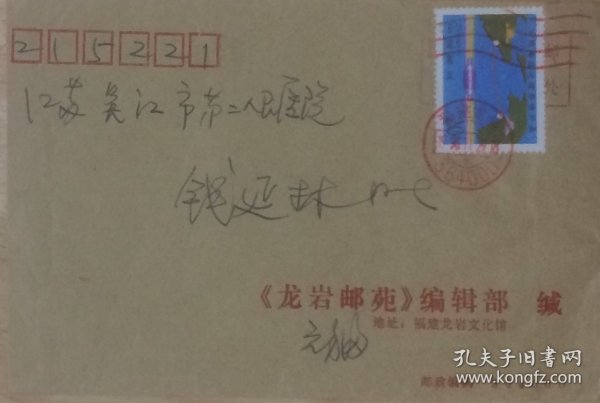 215221
江苏吴江市第二人民医院
钱延林 
《龙岩邮苑》编辑部 缄
地址：福建龙岩文化馆
邮政编码
364000
孔夫子旧书网
www.kongfz.com